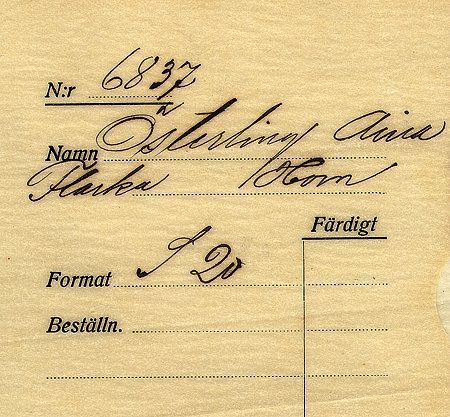 N:r 6837
Namn Österling Aina
Flarka Horn
Färdigt
Format S 20
Beställn.